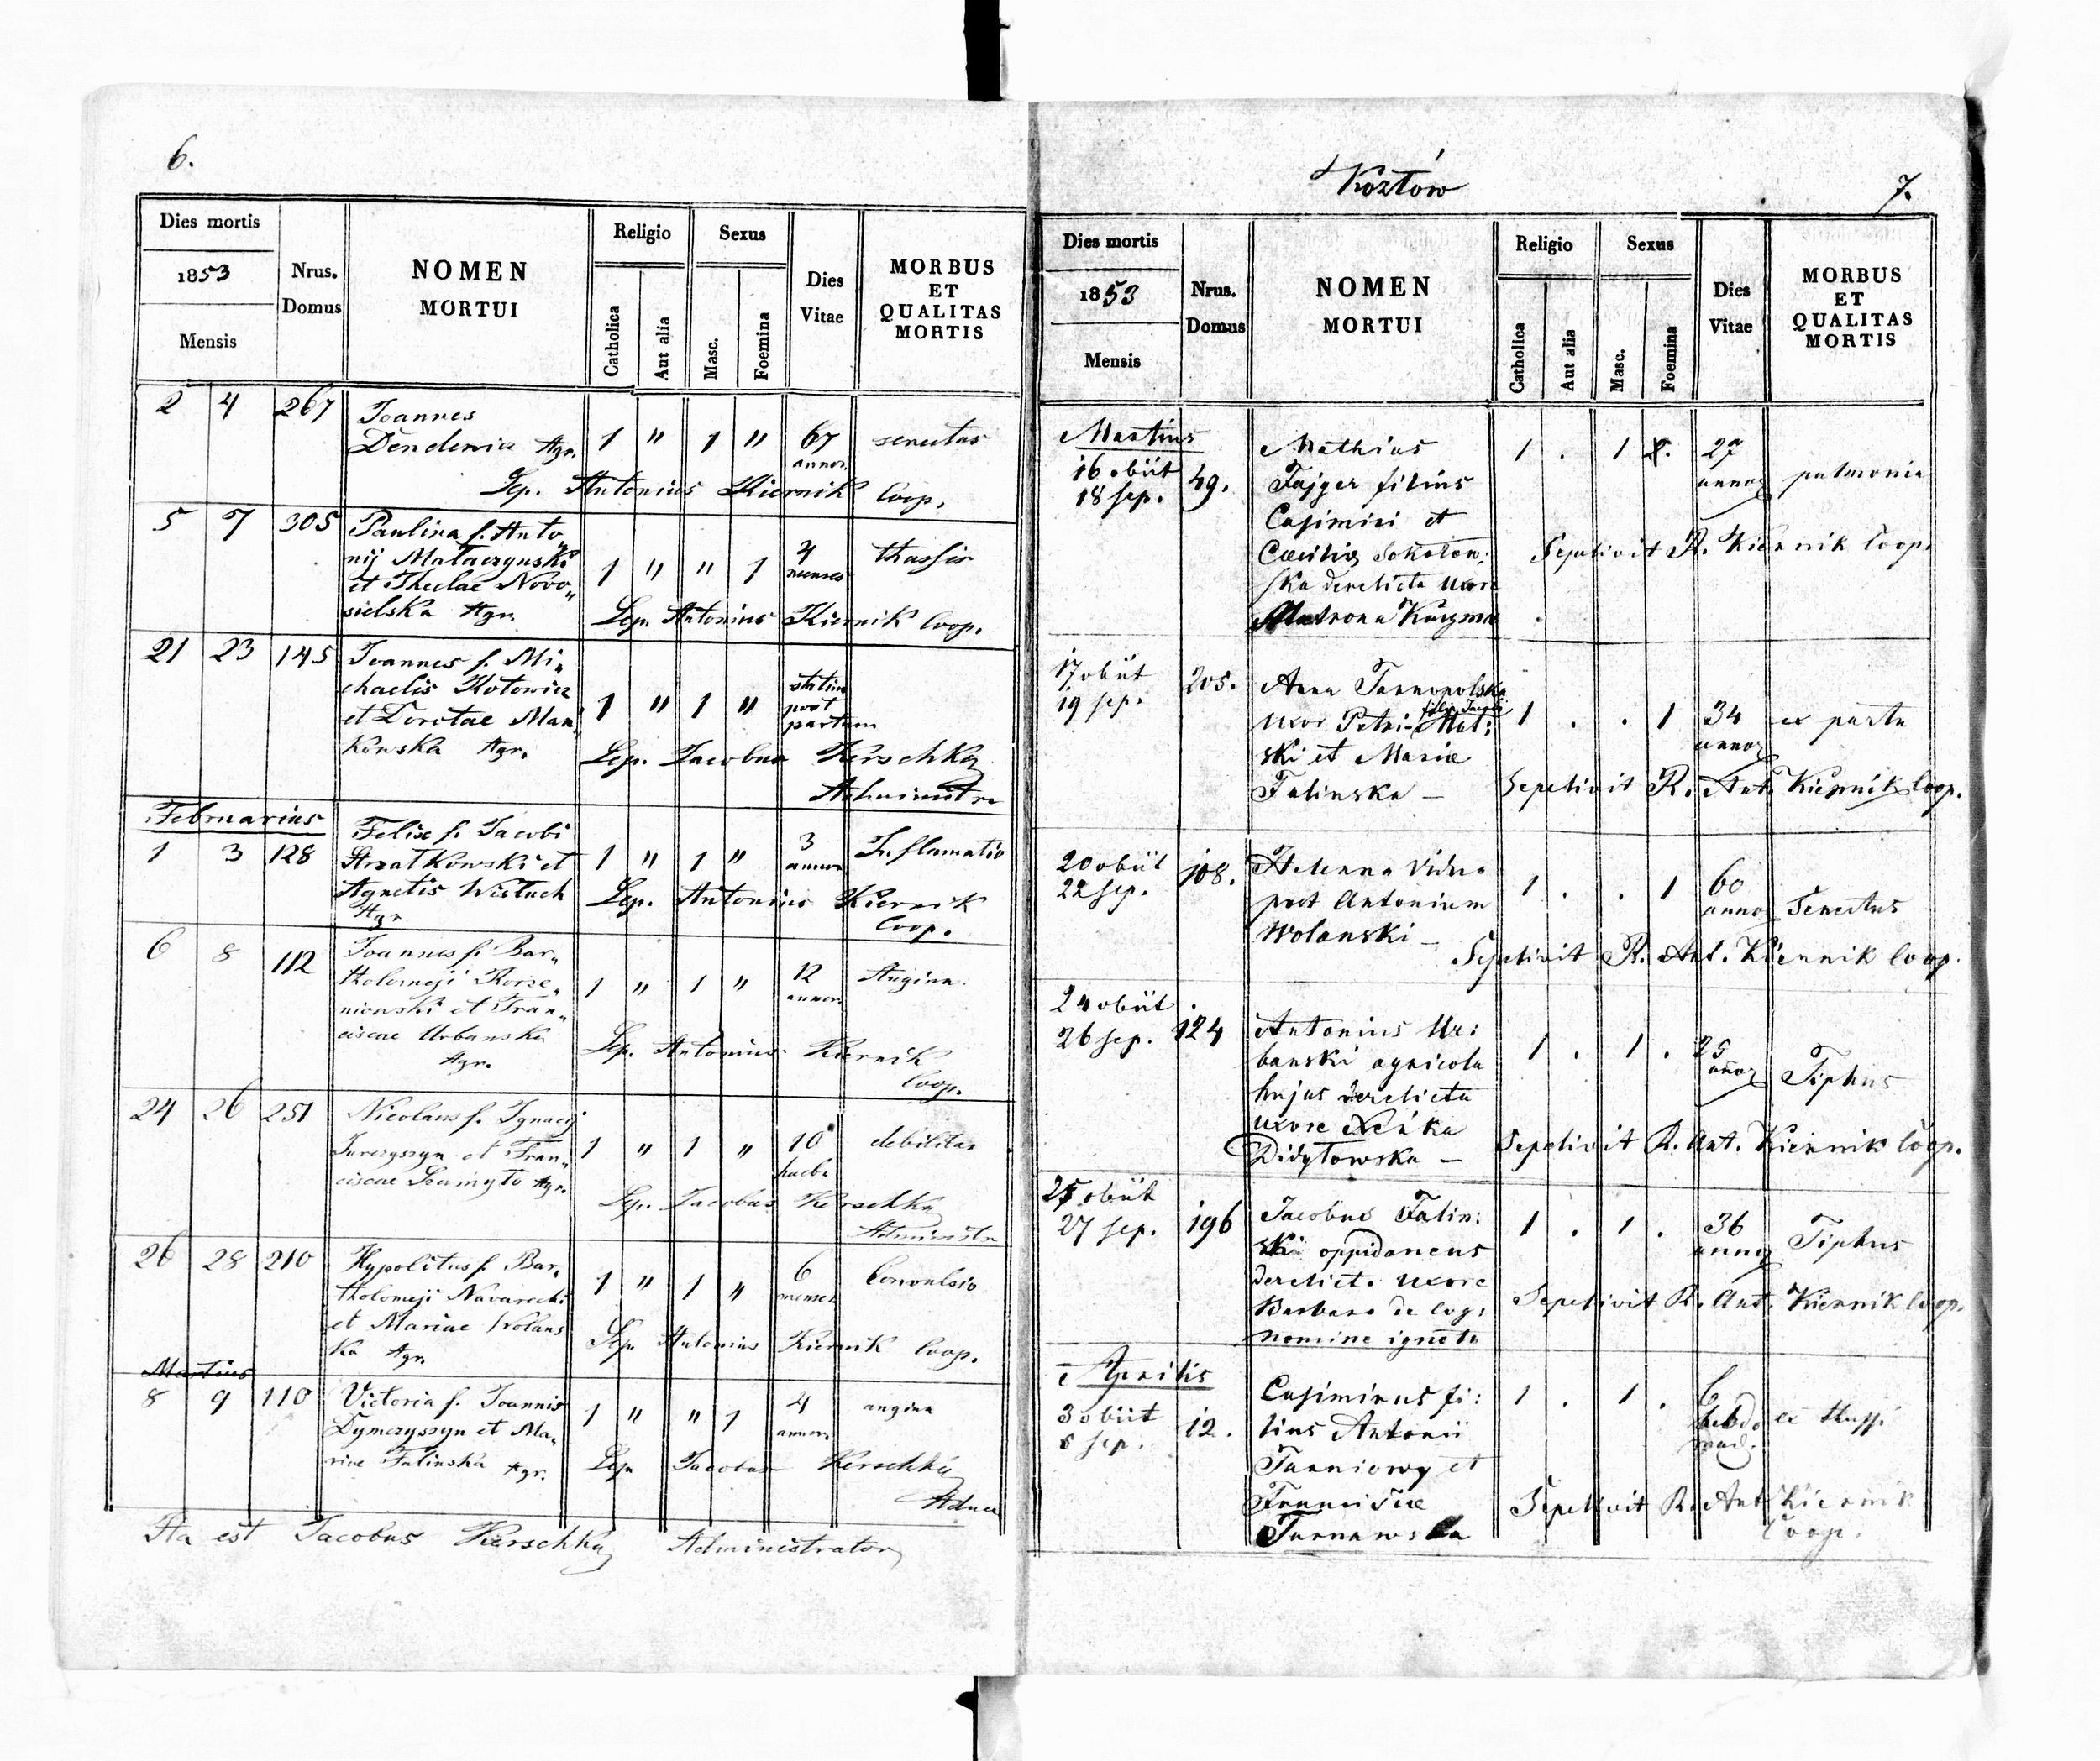 6.
Dies mortis
1853
Mensis
Nrus.
Domus
NOMEN
MORTUI
Religio
Catholica
Aut alia
Sexus
Masc.
Foemina
Dies
Vitae
MORBUS
ET
QUALITAS
MORTIS
2 4 267 Joannes
Dendewicz Agr. 1 " 1 " 67 senectus
annor.
Sep. Antonius Kiernik Coop.
5 7 305 Paulina f. Anto„
nij Mataczynski 4 thussis
et Theclae Novo„ 1 " " 1 menses
sielska Agr. Sep. Antonius Kiernik Coop.
21 23 145 Joannes f. Mi„
chaelis Kotowicz 1 " 1 " statim
et Dorotae Man„ post
kowska Agr. partum
Sep. Jacobus Kerschka
Administr
Februarius
1 3 128 Felix f. Jacobi 3 Inflamatio
Strzatkowski et 1 " 1 " annor
Agnetis Wistuch Sep. Antonius Kiernik
Agr Coop.
6 8 112 Joannes f. Bar„
tholomeji Korze„ 1 " 1 " 12 Angina
niowski et Fran„ annor
ciscae Urbanska Sep. Antonius Kiernik
Agr. Coop.
24 26 251 Nicolaus f. Ignacij
et Fran„ 1 " 1 " 10 debilitas
ciscae Agr.
Sep. Jacobus Kerschka
Administr
26 28 210 Hypolitus f. Bar„ 6 Convulsio
tholomeji Navarecki 1 " 1 " menses
et Mariae Wolans
ka Agr. Sep. Antonius Kiernik Coop.
Martius
8 9 110 Victoria f. Joannis 4 angina
Dymczyszyn et Ma„ 1 " " 1 annor
riae Falinska Agr. Sep. Jacobus Kerschka
Adm
Ita est Jacobus Kerschka Administrator
Kozłów
7.
Dies mortis
1853
Mensis
Nrus.
Domus
NOMEN
MORTUI
Religio
Catholica
Aut alia
Sexus
Masc.
Foemina
Dies
Vitae
MORBUS
ET
QUALITAS
MORTIS
Martius
16 obiit 49. Mathias 1 . 1 . 27 pulmonia
18 sep. Fajger filius annor
Casimiri et
Caeciliae Sokołow: Sepelivit R. Kiernik Coop.
ska derelicta uxore
Matrona Kuzma
17 obiit 205. Anna Tarnopolska
19 sep. filia Jacobi
uxor Petri 1 . . 1 34 ex partu
ski et Mariae annor
Falinska — Sepelivit R. Ant. Kiernik Coop.
20 obiit 108. Helenna Vidua 1 . . 1 60
22 sep. post Antonium annor Senectus
Wolanski —
Sepelivit R. Ant. Kiernik Coop.
24 obiit
26 sep. 124 Antonius Ur: 1 . 1 . 25
banski agricola annor Tiphus
hujus derelicta
uxore
Didytowska — Sepelivit R. Ant. Kiernik Coop.
25 obiit
27 sep. 196 Jacobus Falin: 1 . 1 . 36 Tiphus
ski oppidaneus annor
derelicta uxore
Barbara de cog: Sepelivit R. Ant. Kiernik Coop.
nomine ignota
Aprilis
3 obiit 12. Casimirus fi: 1 . 1 . 6 ex thussi
5 sep. lius Antonii hebdo
Turniowy et mad.
Franciscae Sepelivit R. Ant Kiernik
Turnawska Coop.